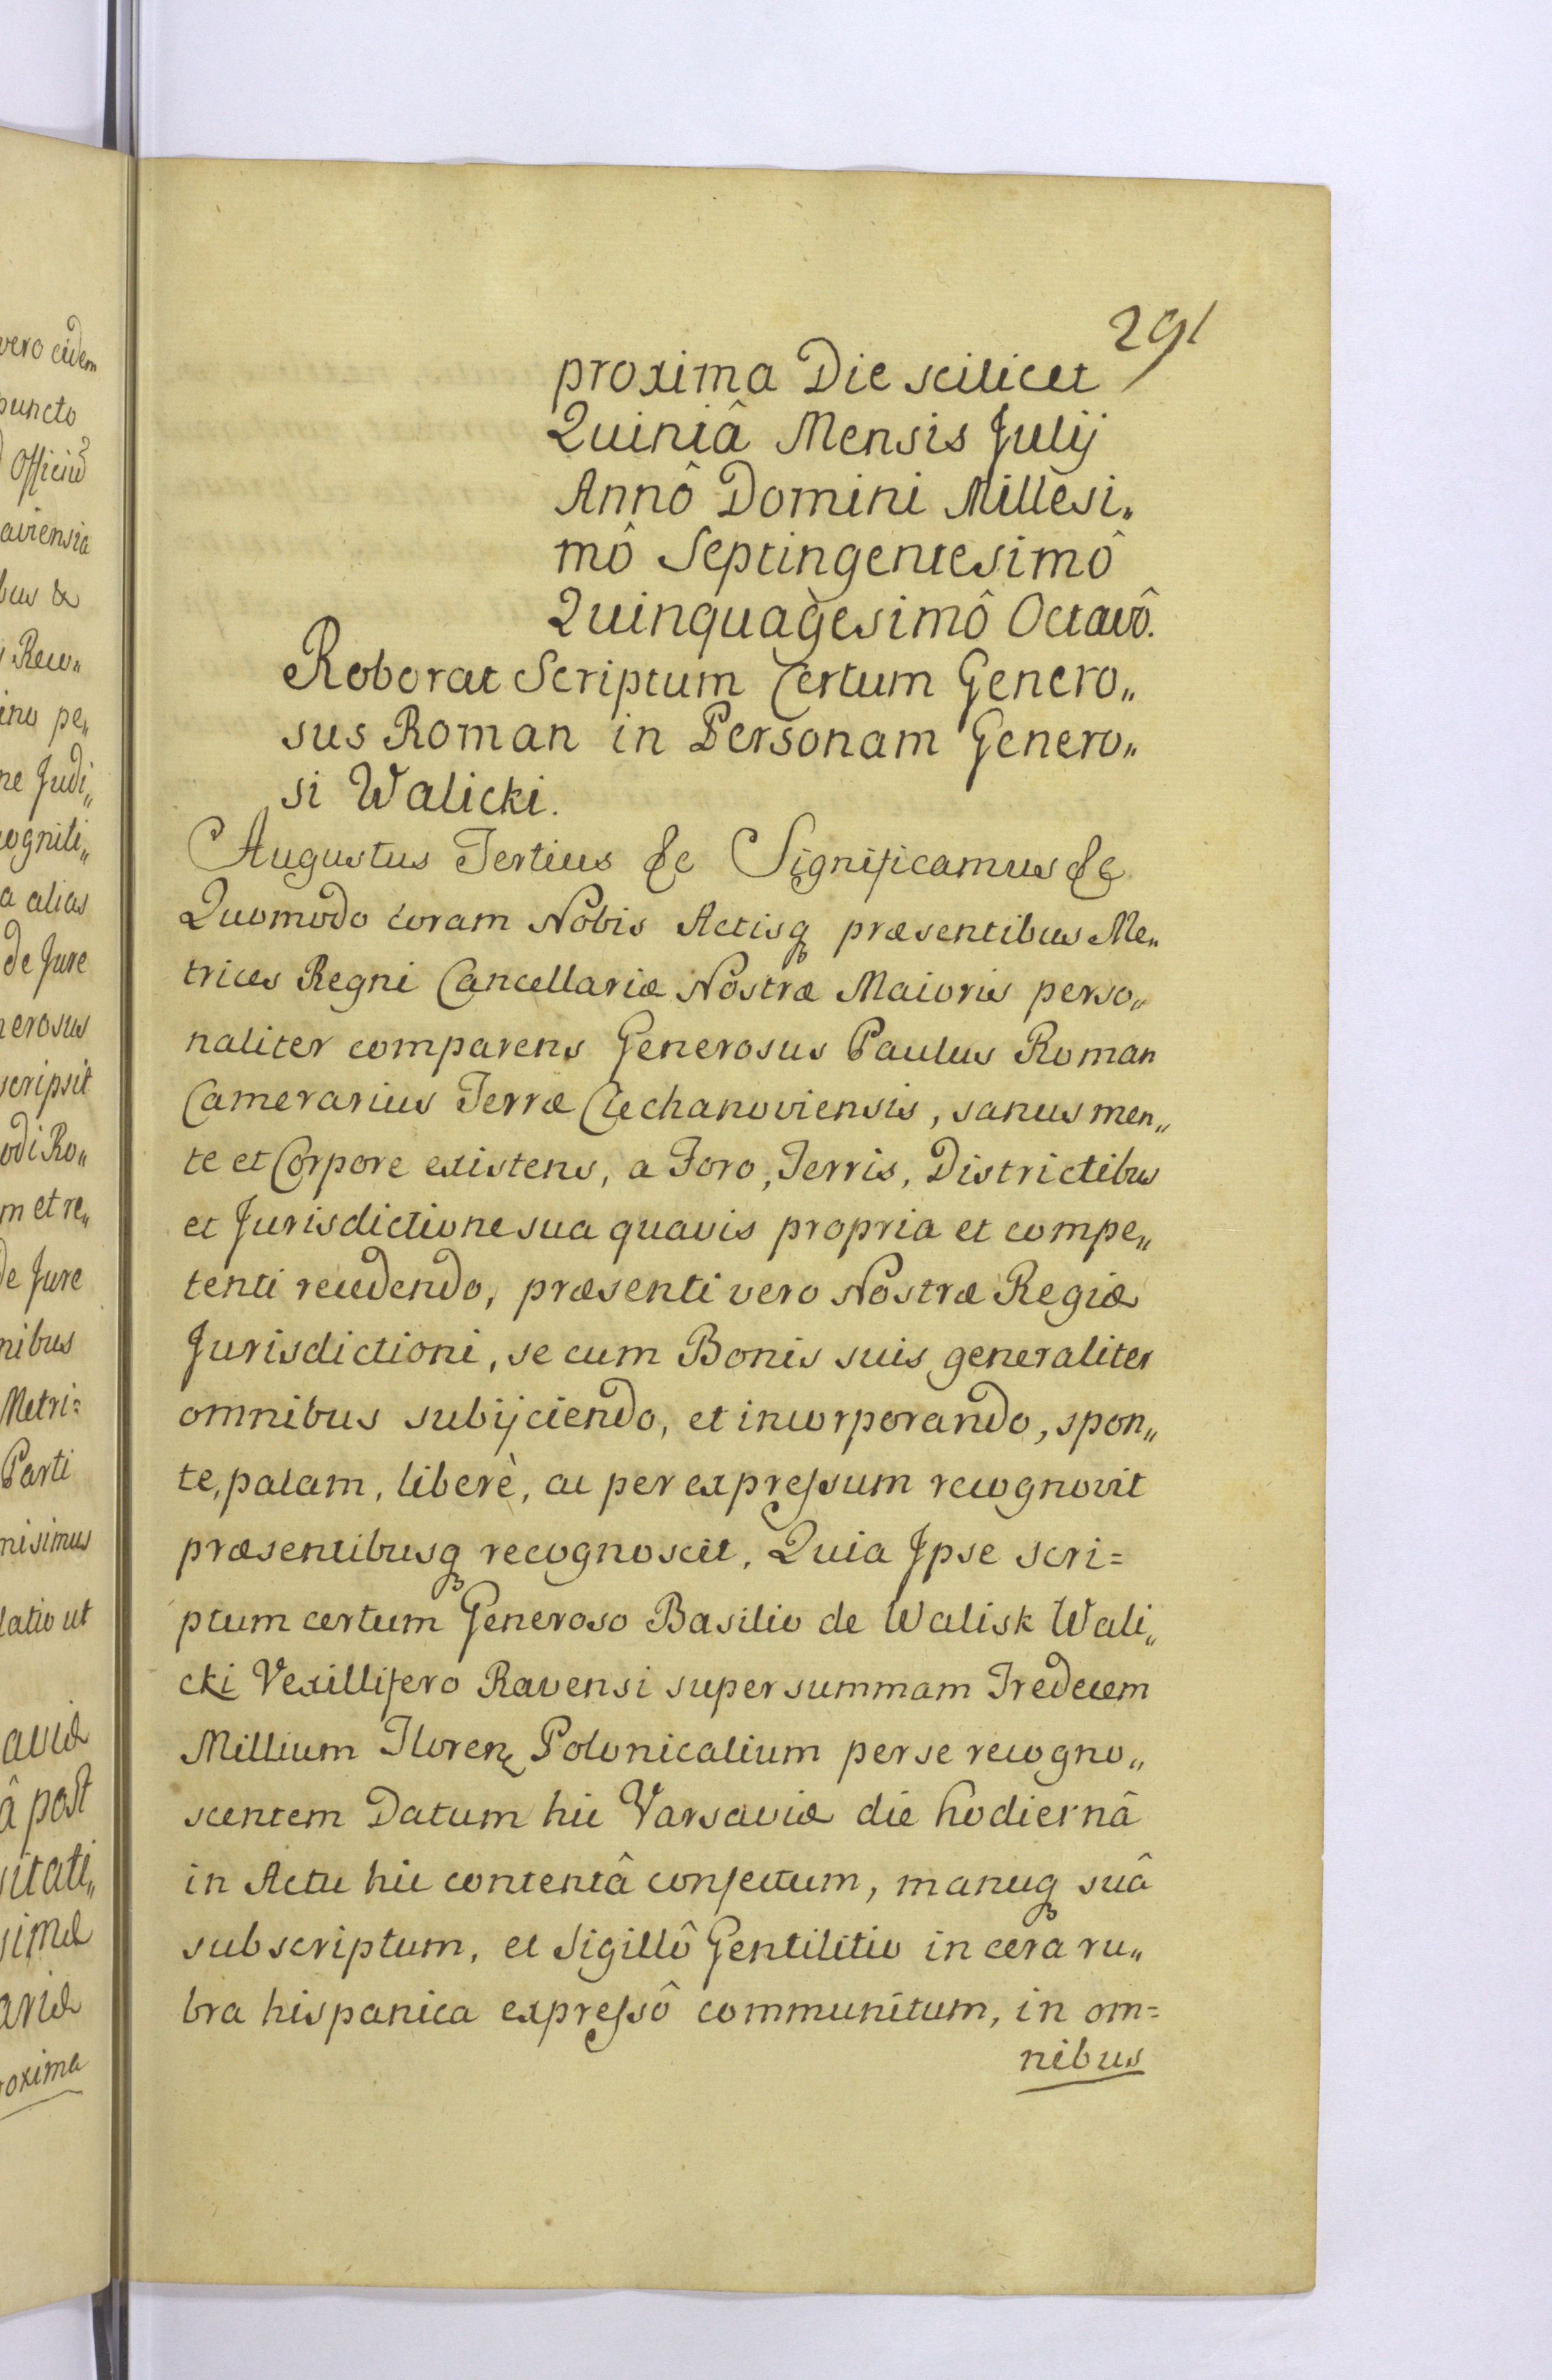 291
proxima Die scilicet
Quintâ Mensis Julij
Annô Domini Millesi„
mô Septingentesimô
Quinquagesimô Octavô.
Roborat Scriptum Certum Genero„
sus Roman in Personam Genero„
si Walicki.
Augustus Tertius &c Significamus &c
Quomodo coram Nobis Actisq præsentibus Me„
trices Regni Cancellariæ Nostræ Maioris perso„
naliter comparens Generosus Paulus Roman
Camerarius Terræ Ciechanoviensis, sanus men„
te et Corpore existens, a Foro, Terris, Districtibus
et Jurisdictione sua quavis propria et compe„
tenti recedendo, præsenti vero Nostræ Regiæ
Jurisdictioni, se cum Bonis suis generaliter
omnibus subijciendo, et incorporando, spon„
te, palam, liberè, ac per expressum recognovit
præsentibusq recognoscit, Quia Ipse scri=
ptum certum Generoso Basilio de Walisk Wali„
cki Vexillifero Ravensi super summam Tredecem
Millium Floren Polonicalium per se recogno„
scentem Datum hic Varsaviæ die hodiernâ
in Actu hic contentâ confectum, manuq suâ
subscriptum, et Sigillô Gentilitio in cera ru„
bra hispanica expressô communitum, in om=
nibus
vero eidem
puncto
Officiũ
aviensia
bus &
Reco„
ino pe„
ne Judi„
cogniti„
a alias
de Jure
nerosus
scripsit
odi Ro„
m et re„
de Jure
nibus
Metri=
Parti
misimus
latio ut
aviæ
â post
sitati„
simæ
ariæ
roxima